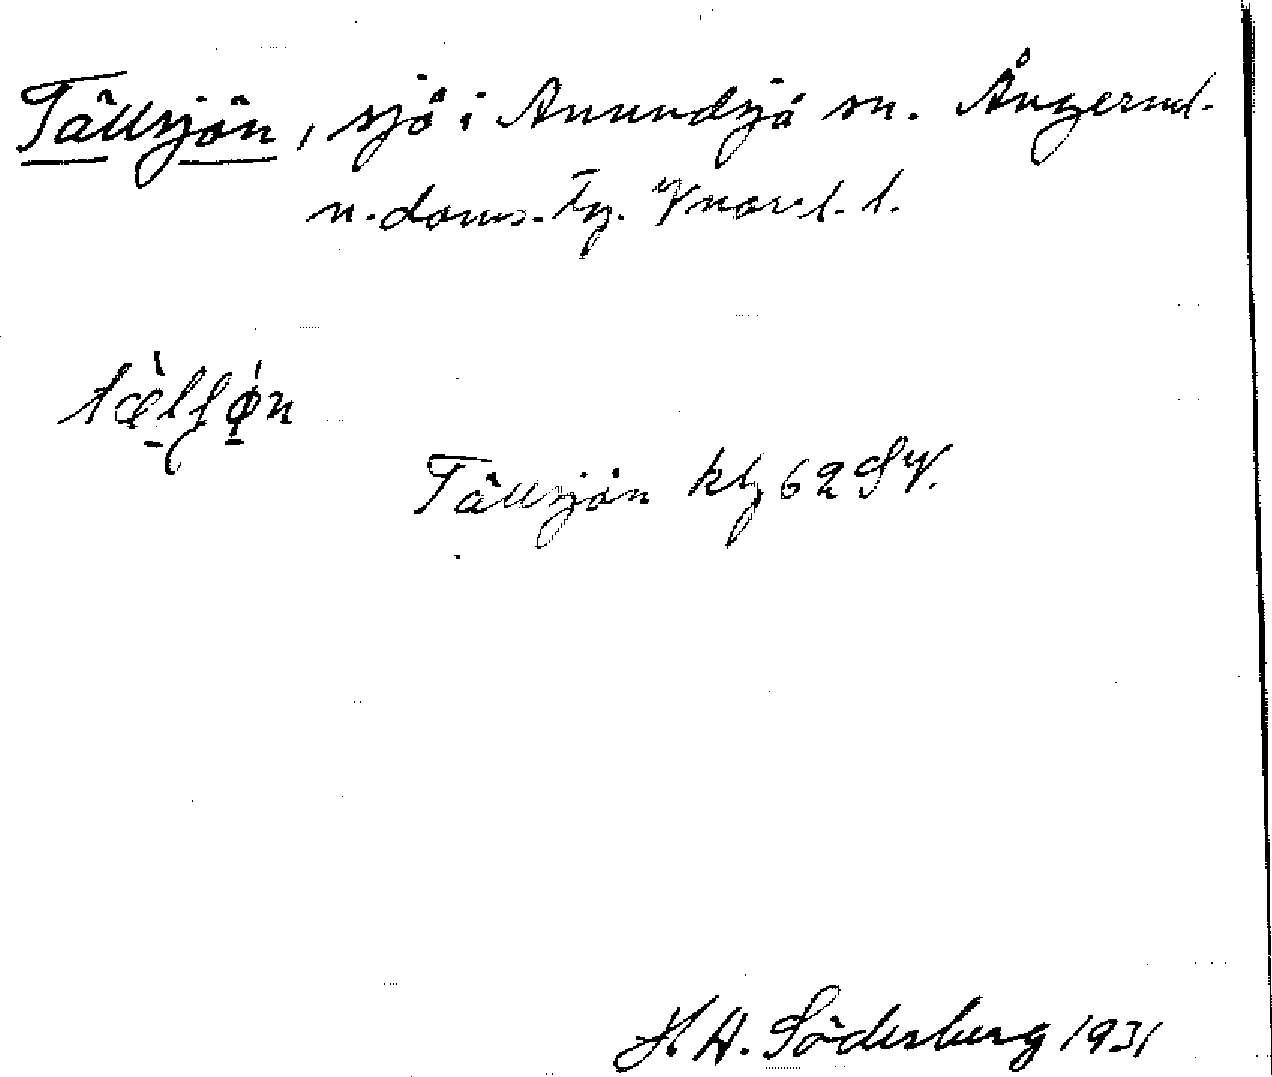 Tällsjön, sjö i Anundsjö sn. Ångerml.
n. doms. Tg. Vnorrl. l.
tæ̀lʃø̀n
Tällsjön kbl 62 SV.
H. A. Söderberg 1931